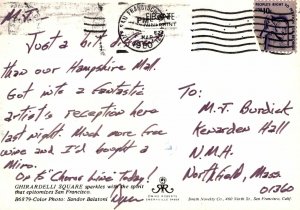 M.T.
Just a bit di
than our Hampshire Mall.
Got into a fantastic
artist's reception here
last night. Much more free
wine and I'd bought a
Miro.
On to "Chorus Line" today!
To:
M.T. Burdick
Kenarden Hall
N.M.H.
Northfield, Mass
01360
GHIRARDELLI SQUARE sparkles with the spirit
that epitomizes San Francisco.
B6879-Color Photo: Sandor Balatoni
SAN FRANCISCO
Smith Novelty Co., 460 Ninth St., San Francisco, Cal.